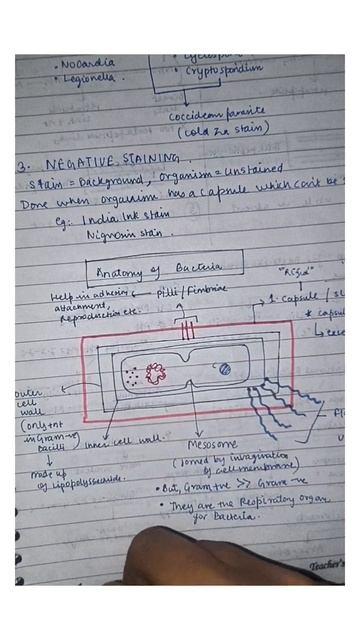 • Nocardia
• Legionella.
• Cryptosporidium
Coccidean parasite
(cold ZN stain)
3. NEGATIVE STAINING.
Stain = Background, organism = unstained
Done when organism has a capsule which can't be
eg: India Ink stain
Nigrosin stain.
Anatomy of Bacteria
Help in adhesion ← Pilli / Fimbriae
attachment,
Reproduction etc.
1. Capsule /
* capsu
outer
cell
wall
(only +nt
in Gram -ve
bacilli)
Inner cell wall.
made up
of Lipopolysaccharide.
Mesosome
(formed by invagination
of cell membrane)
• But, Gram +ve >> Gram -ve
• They are the Respiratory organ
for Bacteria.
Teacher's